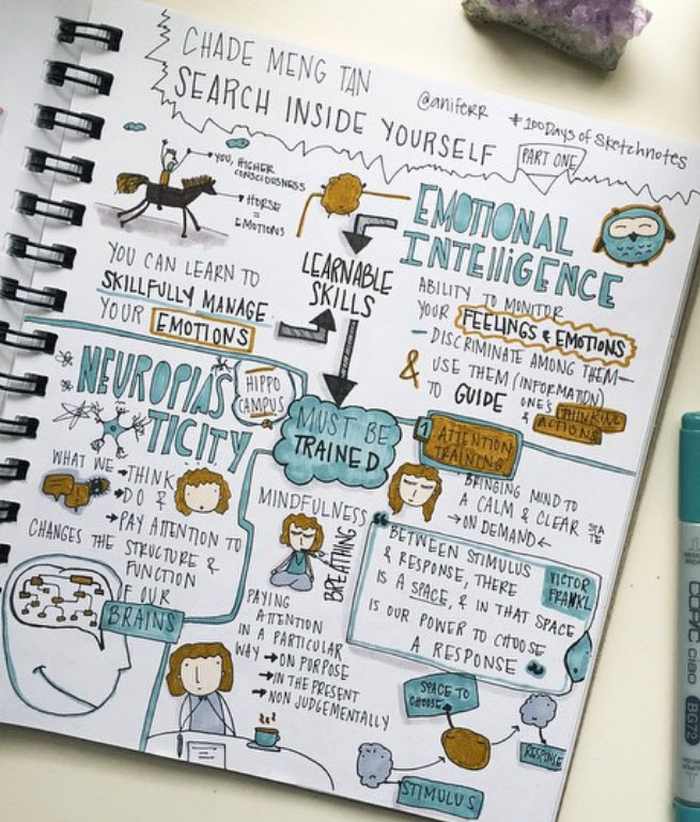 CHADE MENG TAN
SEARCH INSIDE YOURSELF
@aniferr #100Days of Sketchnotes
PART ONE
YOU, HIGHER
CONSCIOUSNESS
HORSE
=
EMOTIONS
YOU CAN LEARN TO
SKILLFULLY MANAGE
YOUR EMOTIONS
LEARNABLE
SKILLS
EMOTIONAL
INTElliGENCE
ABILITY TO MONITOR
YOUR FEELINGS & EMOTIONS
- DISCRIMINATE AMONG THEM -
& USE THEM (INFORMATION)
TO GUIDE ONE'S THINKING
& ACTIONS
NEUROPlAS
TICITY
HIPPO
CAMPUS
WHAT WE → THINK
→ DO &
→ PAY ATTENTION TO
CHANGES THE STRUCTURE &
FUNCTION
OF OUR
BRAINS
MUST BE
TRAINED
1 ATTENTION
TRAINING
BRINGING MIND TO
A CALM & CLEAR STATE
→ ON DEMAND ←
MINDFULNESS
BREATHING
PAYING
ATTENTION
IN A PARTICULAR
WAY → ON PURPOSE
→ IN THE PRESENT
→ NON JUDGEMENTALLY
"BETWEEN STIMULUS
& RESPONSE, THERE
IS A SPACE, & IN THAT SPACE
IS OUR POWER TO CHOOSE
A RESPONSE "
VICTOR
FRANKL
SPACE TO
CHOOSE
RESPONSE
STIMULUS
COPIC ciao
BG72